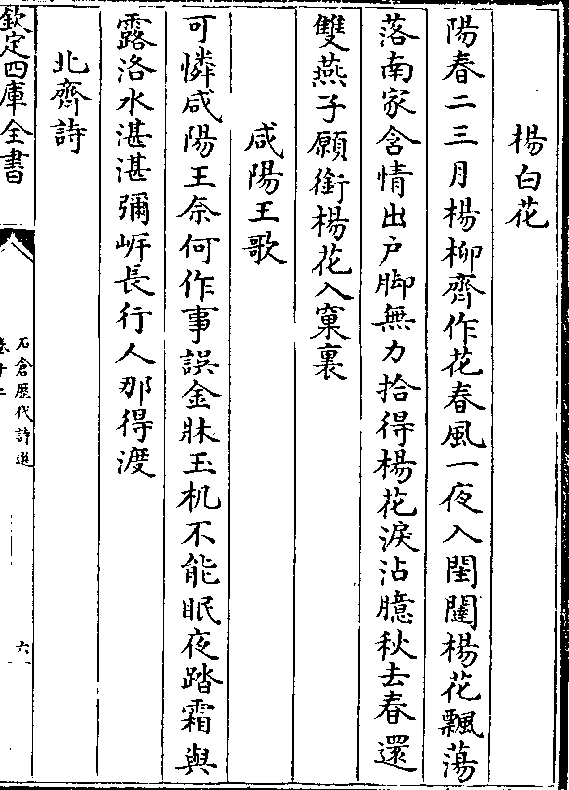 楊白花
陽春二三月楊柳齊作花春風一夜入閨闥楊花飄蕩
落南家含情出户脚無力拾得楊花淚沾臆秋去春還
雙燕子願銜楊花入窠裏
咸陽王歌
可憐咸陽王奈何作事誤金牀玉机不能眠夜踏霜與
露洛水湛湛彌岍長行人那得渡
北齊詩
欽定四庫全書
石倉歷代詩選
卷十二
六